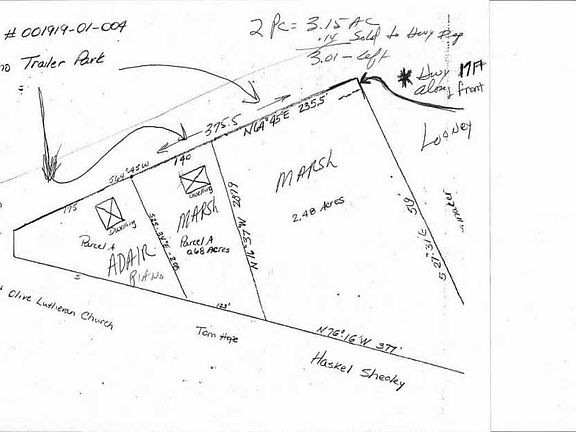 # 001919-01-004
2 Pc = 3.15 AC
.14 Sold to Hwy
3.01 - Left
Trailer Park
* Hwy 17 Ft
along front
375.5
N64°45'E 235.5
LOONEY
S64°45'W
140
MARSH
2.48 Acres
175
Dwelling
Dwelling
MARSH
Parcel A
0.68 Acres
Parcel A
ADAIR
S 27°31'E
59'
S
123'
Olive Lutheran Church
Tom Hope
N76°16'W 377'
Haskel Shealy